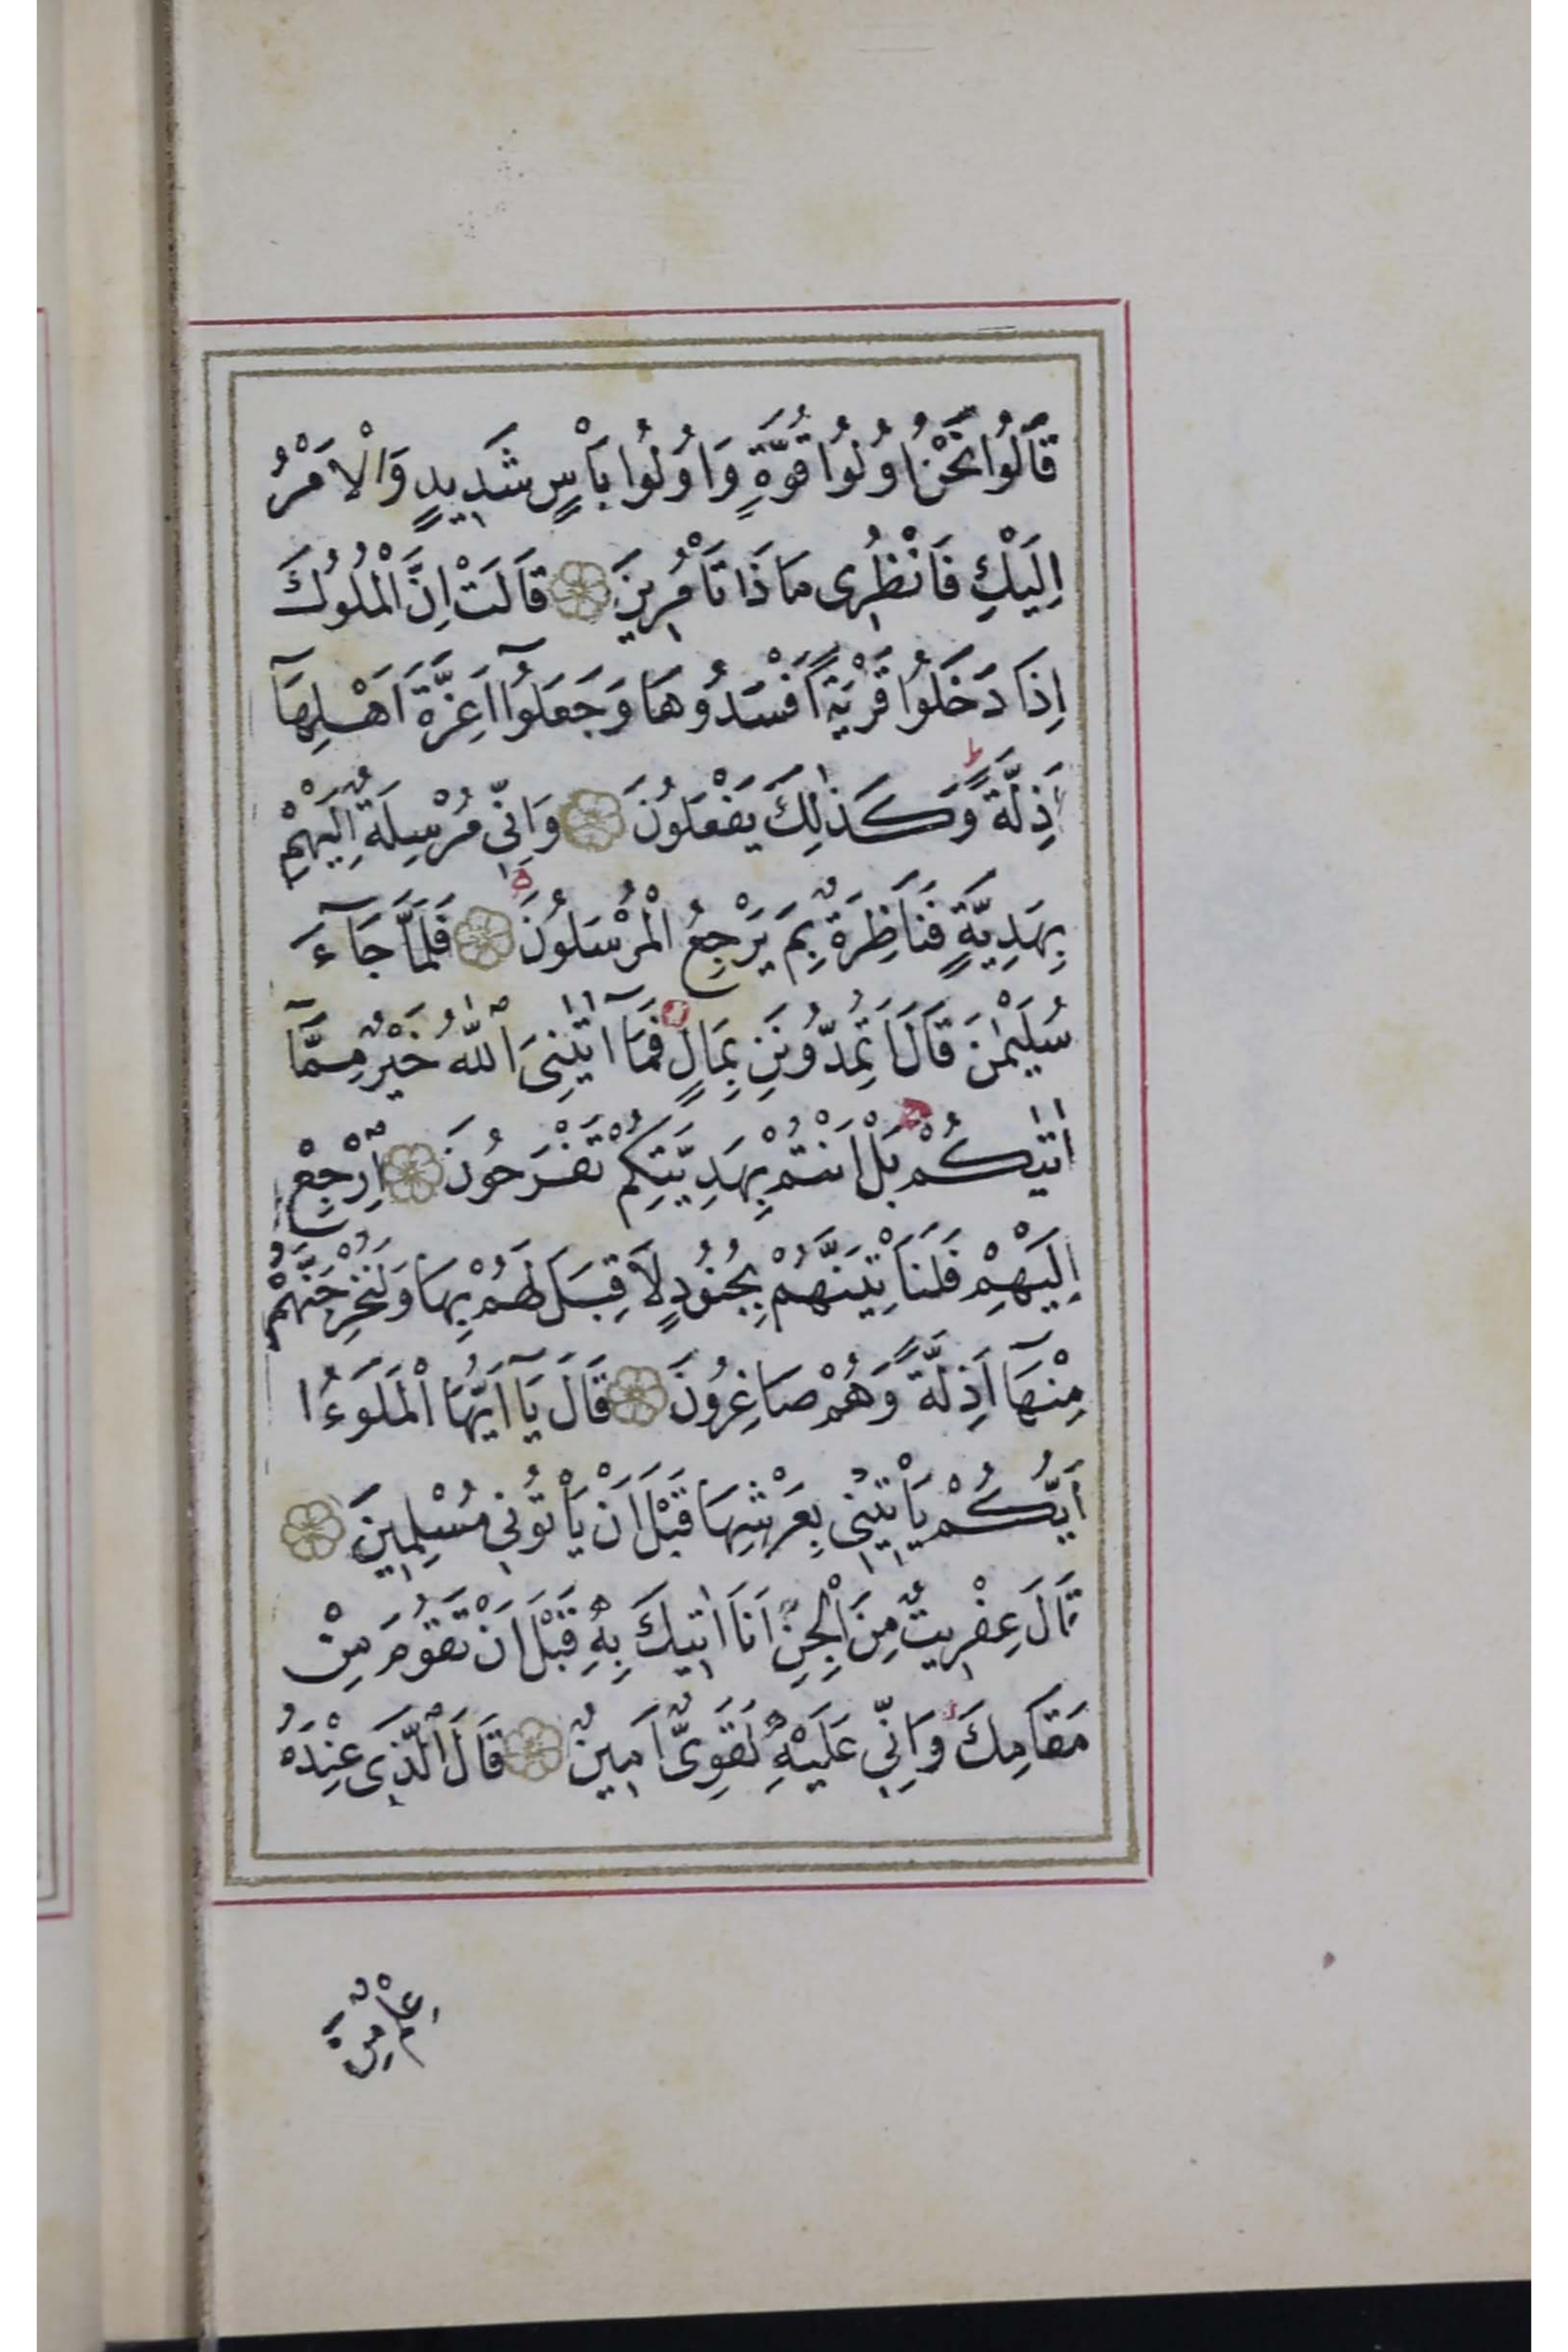 قَالُوا نَحْنُ اُولُوا قُوَّةٍ وَاُولُوا بَأْسٍ شَدِيدٍ وَالْاَمْرُ
اِلَيْكِ فَانْظُرِى مَاذَا تَأْمُرِينَ قَالَتْ اِنَّ الْمُلُوكَ
اِذَا دَخَلُوا قَرْيَةً اَفْسَدُوهَا وَجَعَلُٓوا اَعِزَّةَ اَهْلِهَٓا
اَذِلَّةً وَكَذٰلِكَ يَفْعَلُونَ وَاِنِّى مُرْسِلَةٌ اِلَيْهِمْ
بِهَدِيَّةٍ فَنَاظِرَةٌ بِمَ يَرْجِعُ الْمُرْسَلُونَ فَلَمَّا جَٓاءَ
سُلَيْمٰنَ قَالَ اَتُمِدُّونَنِ بِمَالٍ فَمَٓا اٰتٰينِىَ اللّٰهُ خَيْرٌ مِمَّٓا
اٰتٰيكُمْ بَلْ اَنْتُمْ بِهَدِيَّتِكُمْ تَفْرَحُونَ اِرْجِعْ
اِلَيْهِمْ فَلَنَأْتِيَنَّهُمْ بِجُنُودٍ لَا قِبَلَ لَهُمْ بِهَا وَلَنُخْرِجَنَّهُمْ
مِنْهَٓا اَذِلَّةً وَهُمْ صَاغِرُونَ قَالَ يَٓا اَيُّهَا الْمَلَوءُا
اَيُّكُمْ يَأْتِينِى بِعَرْشِهَا قَبْلَ اَنْ يَأْتُونِى مُسْلِمِينَ
قَالَ عِفْرِيتٌ مِنَ الْجِنِّ اَنَا اٰتِيكَ بِهِ قَبْلَ اَنْ تَقُومَ مِنْ
مَقَامِكَ وَاِنِّى عَلَيْهِ لَقَوِىٌّ اَمِينٌ قَالَ الَّذِى عِنْدَهُ
عِلْمٌ مِنَ